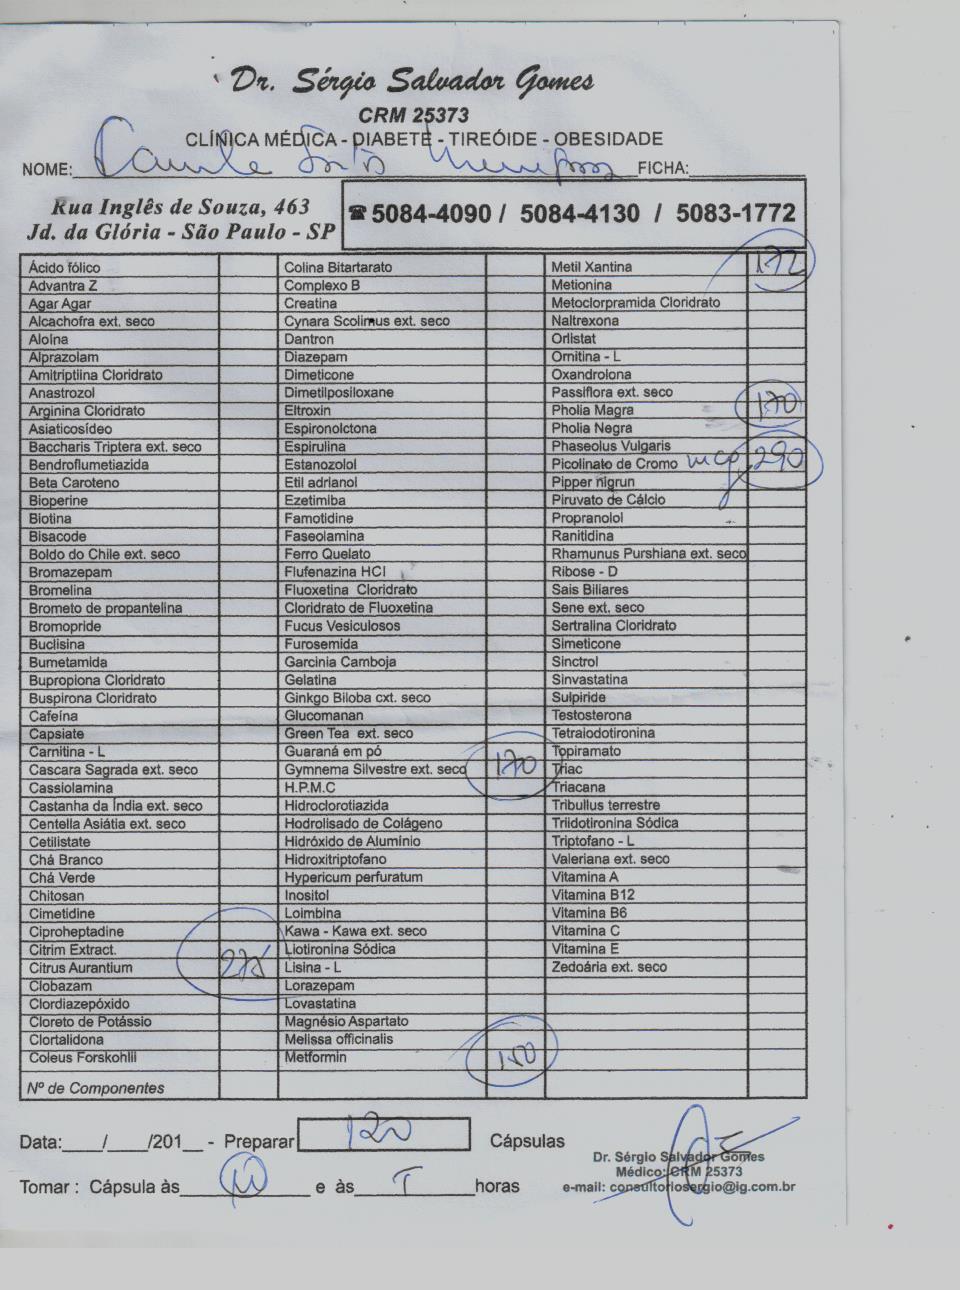 Dr. Sérgio Salvador Gomes
CRM 25373
CLÍNICA MÉDICA - DIABETE - TIREÓIDE - OBESIDADE
NOME: FICHA:
Rua Inglês de Souza, 463
Jd. da Glória - São Paulo - SP
☎ 5084-4090 / 5084-4130 / 5083-1772
Ácido fólico Colina Bitartarato Metil Xantina 172
Advantra Z Complexo B Metionina
Agar Agar Creatina Metoclorpramida Cloridrato
Alcachofra ext. seco Cynara Scolimus ext. seco Naltrexona
Aloína Dantron Orlistat
Alprazolam Diazepam Ornitina - L
Amitriptiina Cloridrato Dimeticone Oxandrolona
Anastrozol Dimetilposiloxane Passiflora ext. seco
Arginina Cloridrato Eltroxin Pholia Magra 170
Asiaticosídeo Espironolctona Pholia Negra
Baccharis Triptera ext. seco Espirulina Phaseolus Vulgaris
Bendroflumetiazida Estanozolol Picolinato de Cromo mcg 290
Beta Caroteno Etil adrianol Pipper nigrun
Bioperine Ezetimiba Piruvato de Cálcio
Biotina Famotidine Propranolol
Bisacode Faseolamina Ranitidina
Boldo do Chile ext. seco Ferro Quelato Rhamunus Purshiana ext. seco
Bromazepam Flufenazina HCI Ribose - D
Bromelina Fluoxetina Cloridrato Sais Biliares
Brometo de propantelina Cloridrato de Fluoxetina Sene ext. seco
Bromopride Fucus Vesiculosos Sertralina Cloridrato
Buclisina Furosemida Simeticone
Bumetamida Garcinia Camboja Sinctrol
Bupropiona Cloridrato Gelatina Sinvastatina
Buspirona Cloridrato Ginkgo Biloba cxt. seco Sulpiride
Cafeína Glucomanan Testosterona
Capsiate Green Tea ext. seco Tetraiodotironina
Carnitina - L Guaraná em pó Topiramato
Cascara Sagrada ext. seco Gymnema Silvestre ext. seco 170 Triac
Cassiolamina H.P.M.C Triacana
Castanha da Índia ext. seco Hidroclorotiazida Tribullus terrestre
Centella Asiátia ext. seco Hodrolisado de Colágeno Triidotironina Sódica
Cetilistate Hidróxido de Alumínio Triptofano - L
Chá Branco Hidroxitriptofano Valeriana ext. seco
Chá Verde Hypericum perfuratum Vitamina A
Chitosan Inositol Vitamina B12
Cimetidine Loimbina Vitamina B6
Ciproheptadine Kawa - Kawa ext. seco Vitamina C
Citrim Extract. Liotironina Sódica Vitamina E
Citrus Aurantium 275 Lisina - L Zedoária ext. seco
Clobazam Lorazepam
Clordiazepóxido Lovastatina
Cloreto de Potássio Magnésio Aspartato
Clortalidona Melissa officinalis
Coleus Forskohlii Metformin 150
Nº de Componentes
Data:____/____/201__ - Preparar 120 Cápsulas
Dr. Sérgio Salvador Gomes
Médico: CRM 25373
Tomar : Cápsula às 10 e às horas
e-mail: consultoriosergio@ig.com.br